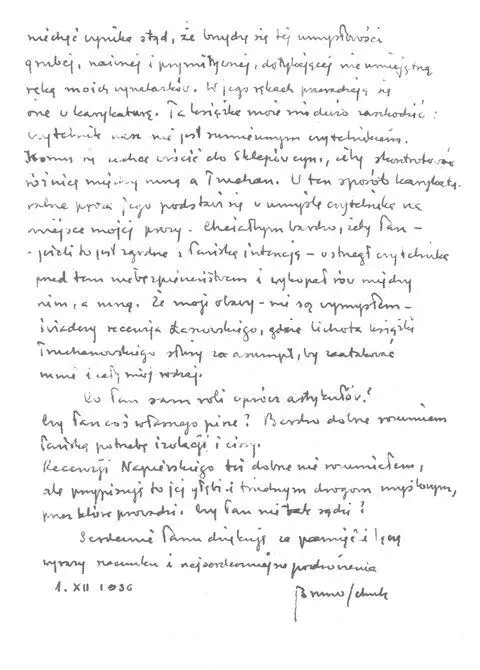 niechęć wynika stąd, że brzydzę się tej umysłowości
grubej, naiwnej i prymitywnej, dotykającej nieumiejętną
ręką moich wynalazków. W jego rękach przeradzają się
one w karykaturę. Ta książka może mi dużo zaszkodzić:
czytelnik nasz nie jest sumiennym czytelnikiem.
Komu się zechce wrócić do Sklepów cyn., ażeby skontrolować
różnicę między mną a Truchan. W ten sposób karykatu-
ralna proza jego podstawi się w umyśle czytelnika na
miejsce mojej prozy. Chciałbym bardzo, żeby Pan –
– jeżeli to jest zgodne z Pańską intencją – ustrzegł czytelnika
przed tem niebezpieczeństwem i wykopał rów między
nim, a mną. Że moje obawy – nie są wymysłem –
świadczy recenzja Łanowskiego, gdzie lichota książki
Truchanowskiego służy za asumpt, by zaatakować
mnie i cały mój rodzaj.
Co Pan sam robi oprócz artykułów?
Czy Pan coś własnego pisze? Bardzo dobrze rozumiem
Pańską potrzebę izolacji i ciszy.
Recenzji Napierskiego też dobrze nie rozumiałem,
ale przypisuję to jej głębi i trudnym drogom myślowym,
przez które prowadzi. Czy Pan nie tak sądzi?
Serdecznie Panu dziękuję za pamięć i łączę
wyrazy szacunku i najserdeczniejsze pozdrowienia
1. XII 1936
Bruno Schulz